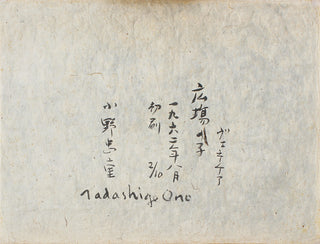 広場の子
一九六二年八月
初刷 2/10
小野忠重
Tadashige Ono